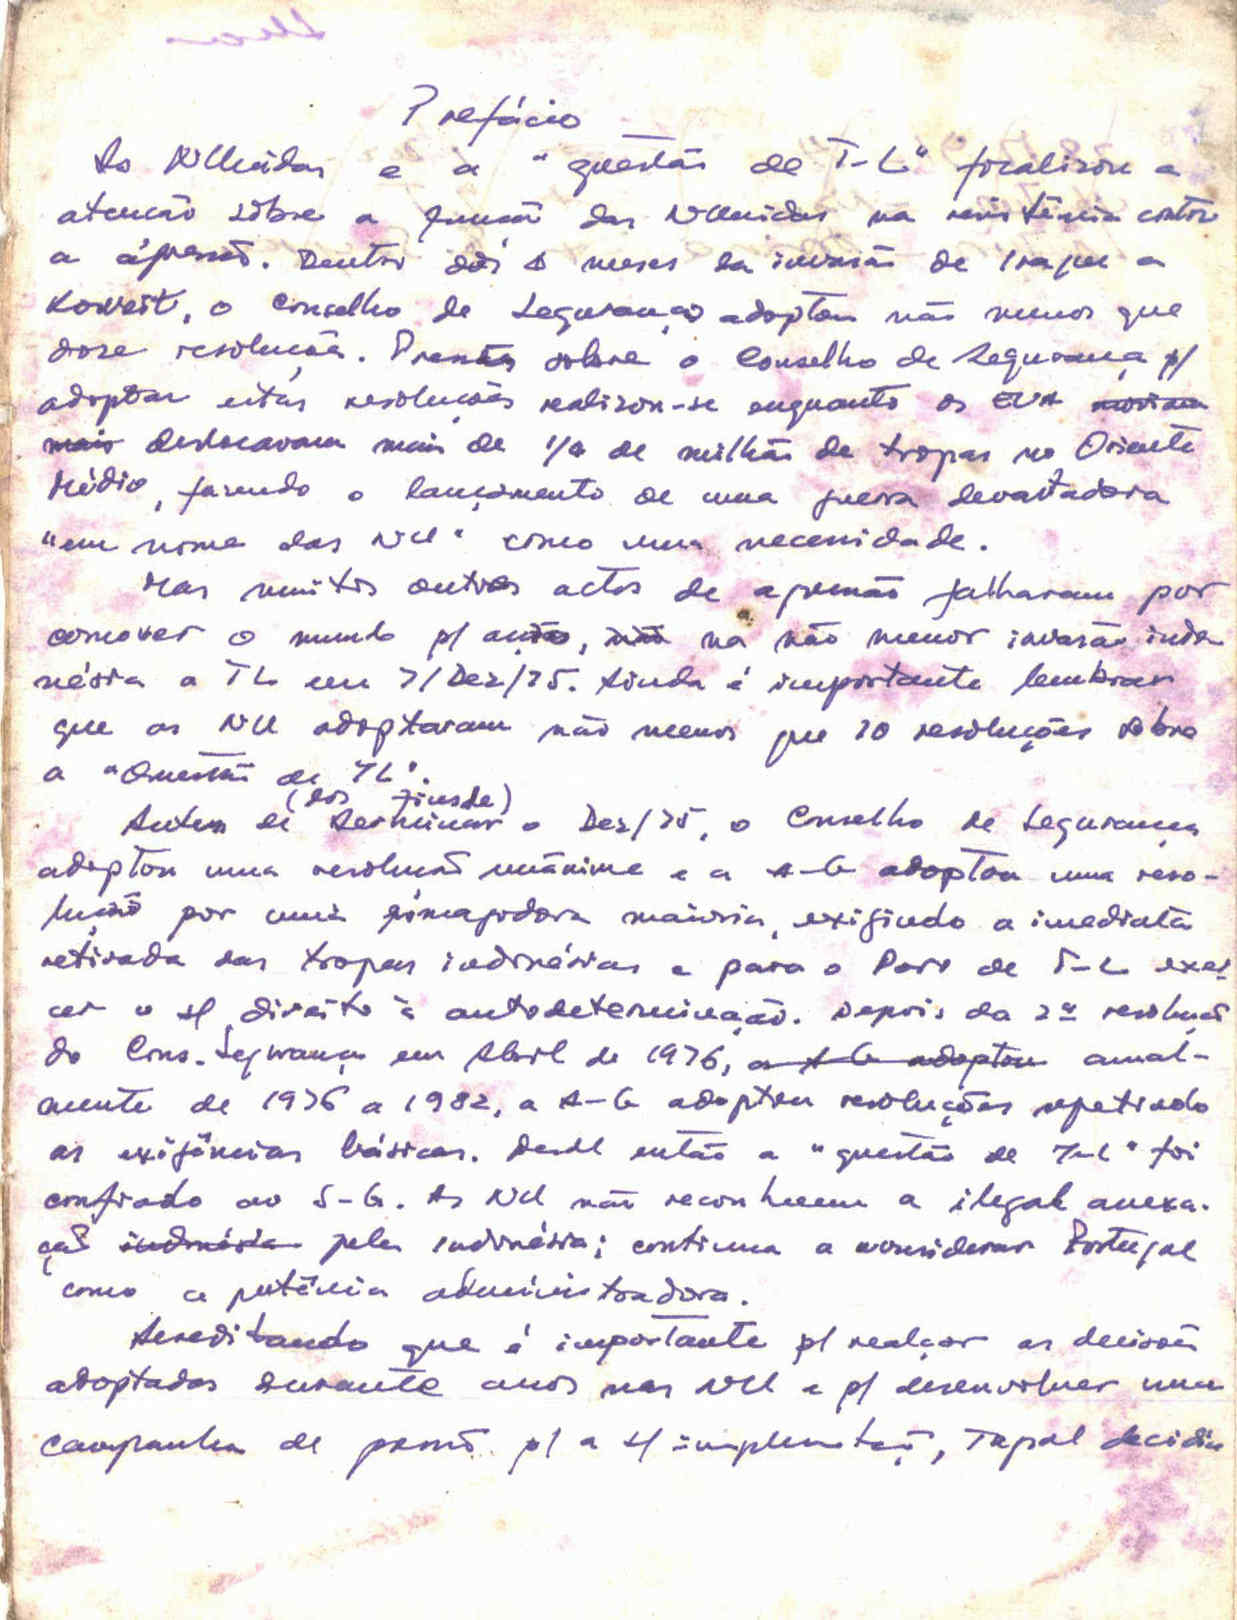 Prefácio
As NUnidas e a "questão de T-L" focalizou a
atenção sôbre a função das NUnidas na resistência contra
a agressão. Dentro dos 4 meses da invasão de Iraque a
Koweit, o Conselho de Segurança adoptou não menos que
doze resoluções. Pressão sobre o Conselho de Segurança p/
adoptar estas resoluções realizou-se enquanto os EUA moviam
mais deslocavam mais de 1/4 de milhão de tropas no Oriente
Médio, fazendo o lançamento de uma guerra devastadora
"em nome das NU" como uma necessidade.
Mas muitos outros actos de agressão falharam por
comover o mundo p/ acção, não na não menor invasão indo
nésia a TL em 7/Dez/75. Ainda é importante lembrar
que as NU adoptaram não menos que 10 resoluções sobre
a "Questão de TL".
(dos finsde)
Antes de terminar o Dez/75, o Conselho de Segurança
adoptou uma resolução unânime e a A-G adoptou uma reso-
lução por uma maioria, exigindo a imediata
retirada das tropas indonésias e para o Povo de T-L exer
cer o s/ direito à autodeterminação. Depois da 2ª resolução
do Cons. Segurança em Abril de 1976, a A-G adoptou anual-
mente de 1976 a 1982, a A-G adoptou resoluções repetindo
as exigências básicas. Desde então a "questão de T-L" foi
confiado ao S-G. As NU não reconhecem a ilegal anexa-
ção indonésia pela Indonésia; continua a considerar Portugal
como a potência administradora.
Acreditando que é importante p/ realçar as decisões
adoptadas durante anos nas NU e p/ desenvolver uma
campanha de pressão p/ a s/ implementação, Tapol decidiu